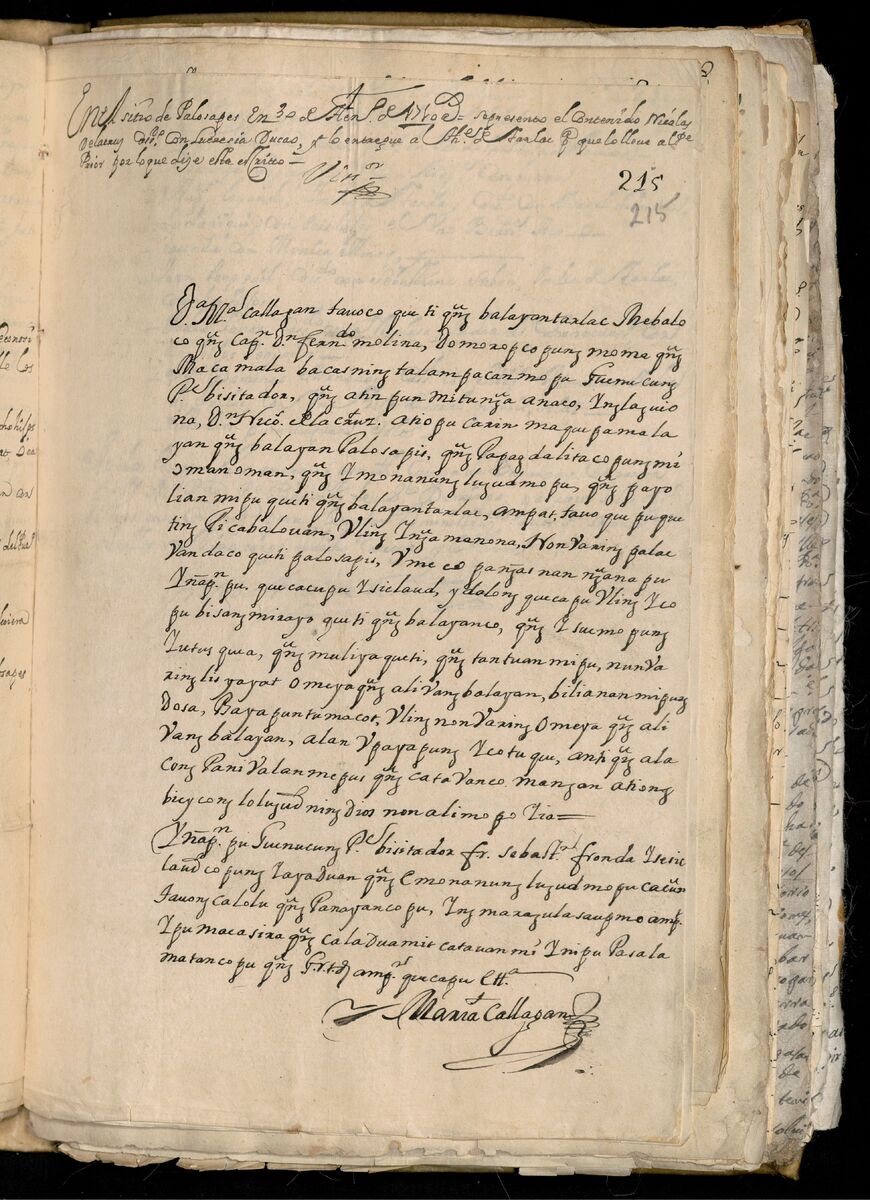 En el sitio de Palosapes En 30 de Hen.º de 1710 = represento el Contenido Nicolas
Delacruz con Lucresia Ducas, y lo entregue a de Tarlac p.ª que lo lleve al P.e
Prior por lo que dije esta escritto =
215
215
D.ª M.ª Callagan tauoco queti qñg balayan tarlac Mebalo
co qñg Cap.n D.n fern.do molina, Domoropco pung moma qñg
Macamala bacasning talampacanmo pu Guenucung
P.e bisitador, qñg atin pun mitunḡa anaco, Ynglaguio
na, D.n Nico.s Dela Cruz. atio pu carin maquipamala
yan qñg balayan Palosapis, qñg Papagdalitaco pung mi
omanoman, qñg Ymonanung lugud mo pu, qñg payo
lian mi pu queti qñg balayan tarlac, ampat, tauo que pu que
ting Picabalouan, Vling Ynḡa manona, Non Varing palac
Vandaco queti palosapis, Vmeco panḡasnan nḡana pu
Yñap.n pu. que cacu pu Ysiclaud, ydalong queca pu Vling Yco
pu bisang mirayo queti qñg balayanco, qñg Ysuemo pung
Yutus quea, qñg muliya queti, qñg tantuan mi pu, nun Va
ring lis yayat Omeya qñg ali Vang balayan, bilianan mi pung
Dosa, Baya pun tumacot, Vling non Varing Omeya qñg ali
Vang balayan, alan Vpaya pung Yco tu que, anti qñg ala
cong Pani Valan me pus qñg cata Vanco. manḡan ationg
bieycong lolugud ning Dios non alimo po Yia =
Yñap.n pu Guenucung P.e bisitador fr. Sebast.n fronda Ysic
laud co pung Yaya Duan qñg Emonanung lugud mo pu cacun
tauong calolu qñg Panayanco pu, Yng maragula saupmo amp.
Ypu macasira qñg cala Duamit catauan mi Yni pu Pasala
matanco pu qñg amp.n queca pu Ett.ª
Maria Callagan